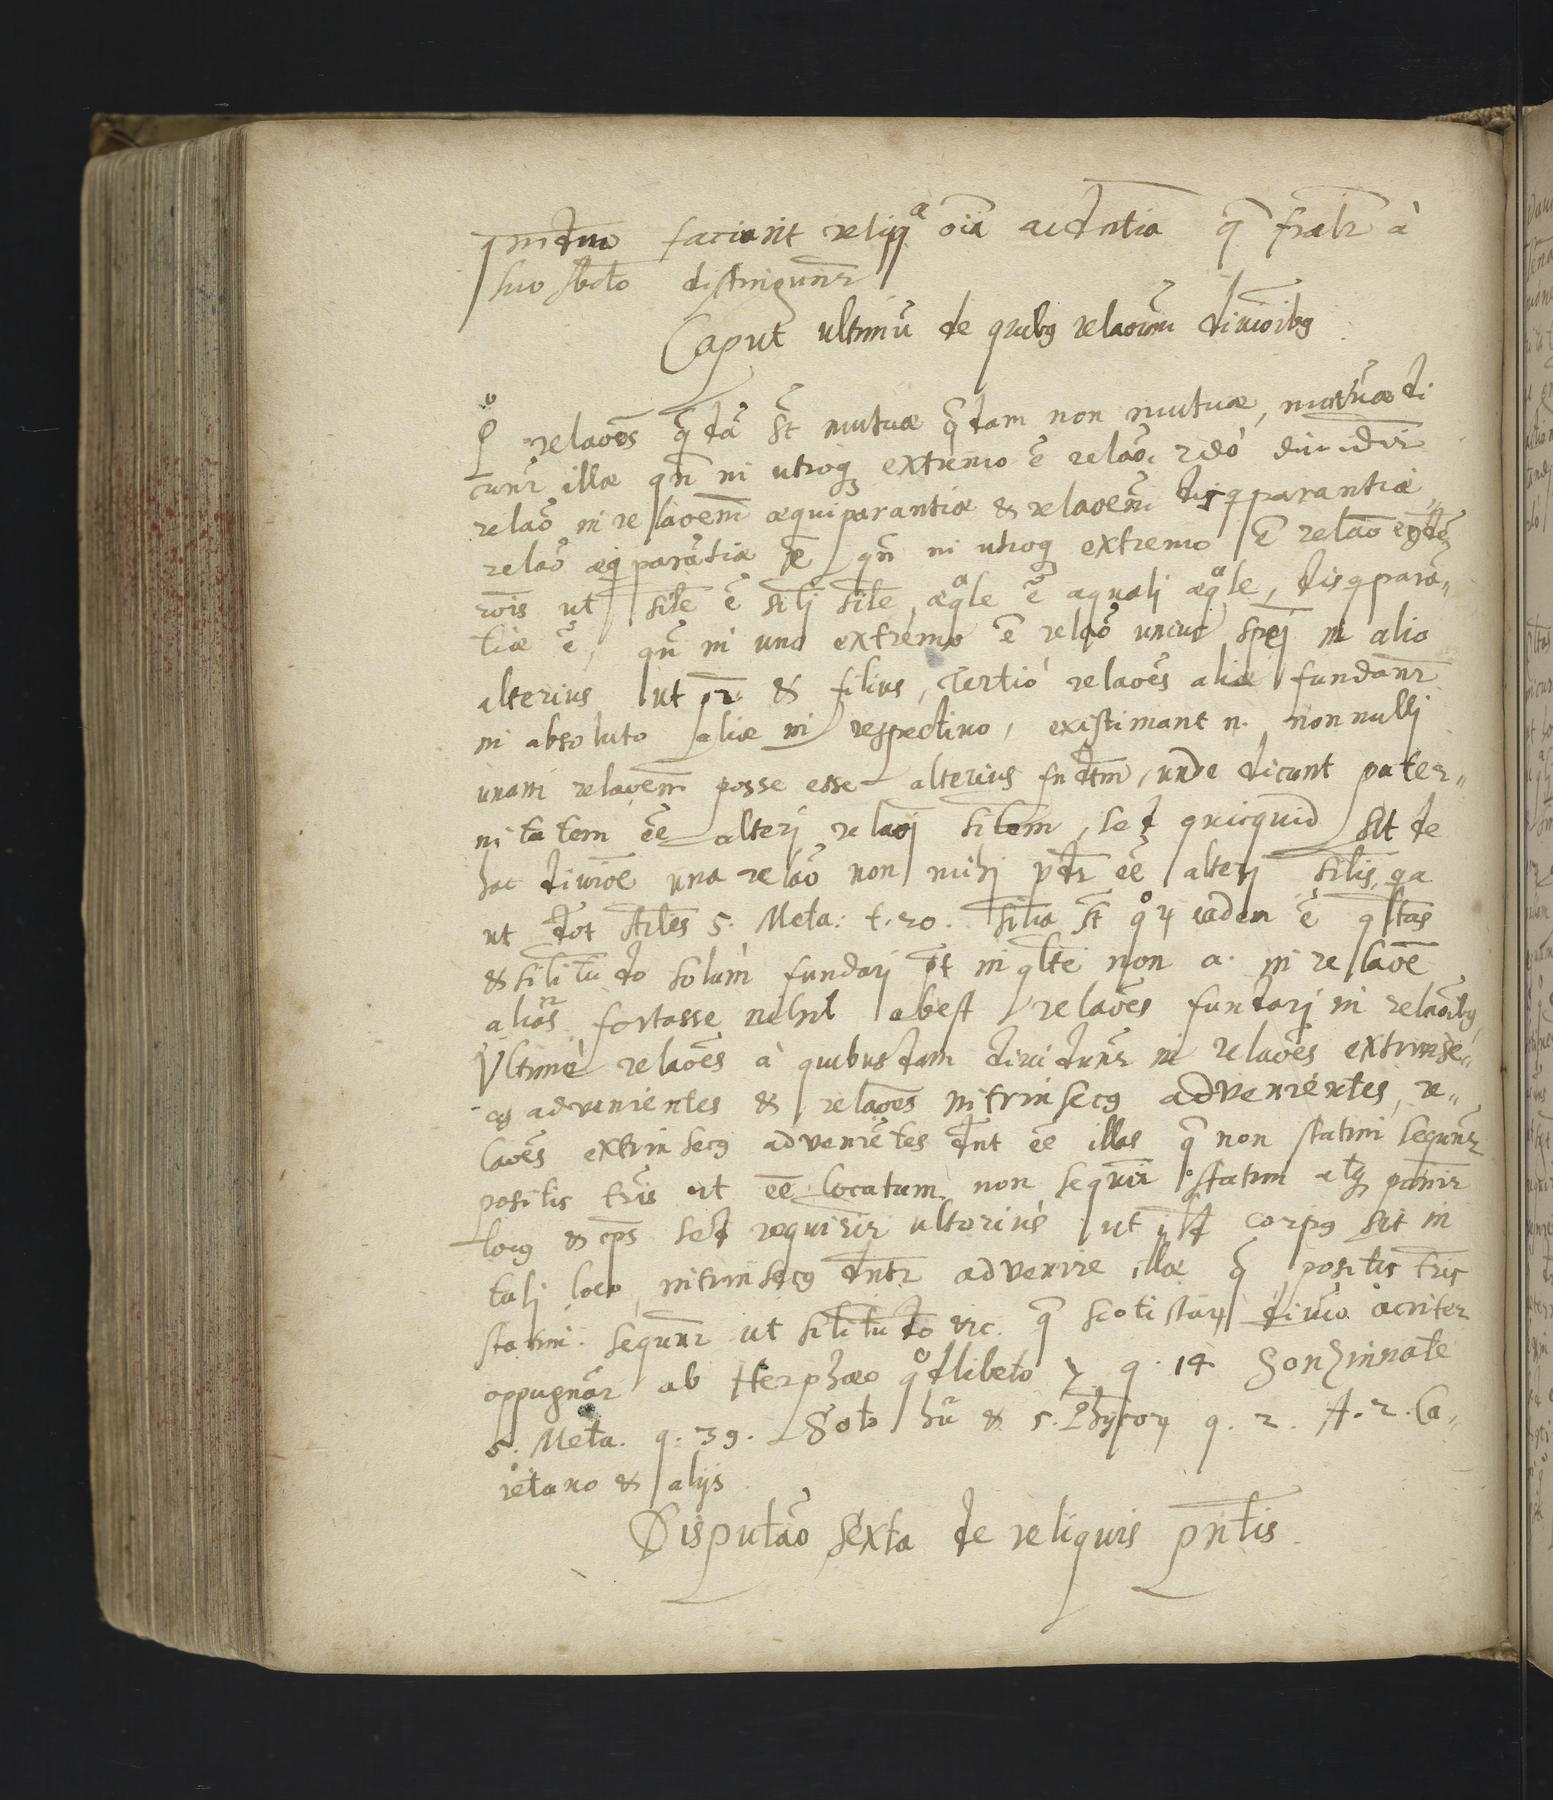 faciant reliqa oīa acdntia q̄ frālr̄ à
suo sbcto distingunr̄
Caput ultimū de quibg relaoūm diuioibg
Pº relaoēs q̄dā st̄ mutuæ q̄dam non mutuæ, mutuæ di
cunr̄ illæ qn̄ in utroqꝫ extremo ē relaō. 2dò diuidr̄
relaō in relaoem̄ æquiparantiæ & relaoem̄ disqparantiæ,
relaō æqiparātiæ ē qn̄ in utroqꝫ extremo ē relaō eiusdē
rōis ut sile ē sili sile, æqale ē æquali æqale, disqparā-
tiæ ē, qn̄ in uno extremo ē relaō unius spēi in alio
alterius ut pr̄ & filius, Tertiò relaoēs aliæ fundanr̄
in absoluto aliæ in respectiuo, existimant n. nonnulli
unam relaoem̄ posse esse alterius fndtm̄, unde dicunt pater-
nitatem eē alteri relaoi silem̄, sed quicquid sit de
hac diuiōe una relaō non mihi vdr̄ eē alteri silis, qa
ut dot Ariles 5. Meta: t. 20. silia st̄ quoꝝ eadem ē qltas
& silitudo solùm fundari pt̄ in qlte non a. in relaoē
aliàs fortasse nihil abest relaoēs fundari in relaoibg
Vltimò relaoēs à quibusdam diuidunr̄ in relaoēs extrinse-
cg advenientes & relaoēs intrinsecg advenientes, re-
laoēs extrinsecg advenientes dnt eē illas q̄ non statim sequnr̄
positis tr̄is ut eē locatum non sequir̄ statim atqꝫ ponir̄
locg & cps sed requirir̄ ulterius ut corpg sit in
tali loco, intrinsecg dntr̄ advenire illæ q̄ positis tr̄is
statim sequnr̄ ut silitudo &c. q̄ scotistaꝝ diuio acriter
oppugnār ab Heruæo qdlibeto 7 q. 14 Sonzinnate
5. Meta. q. 39. Soto hīc & 5. Phycoꝝ q. 2. A. 2. Ca-
ietano & alijs
Disputāo sexta de reliquis pn̄tis